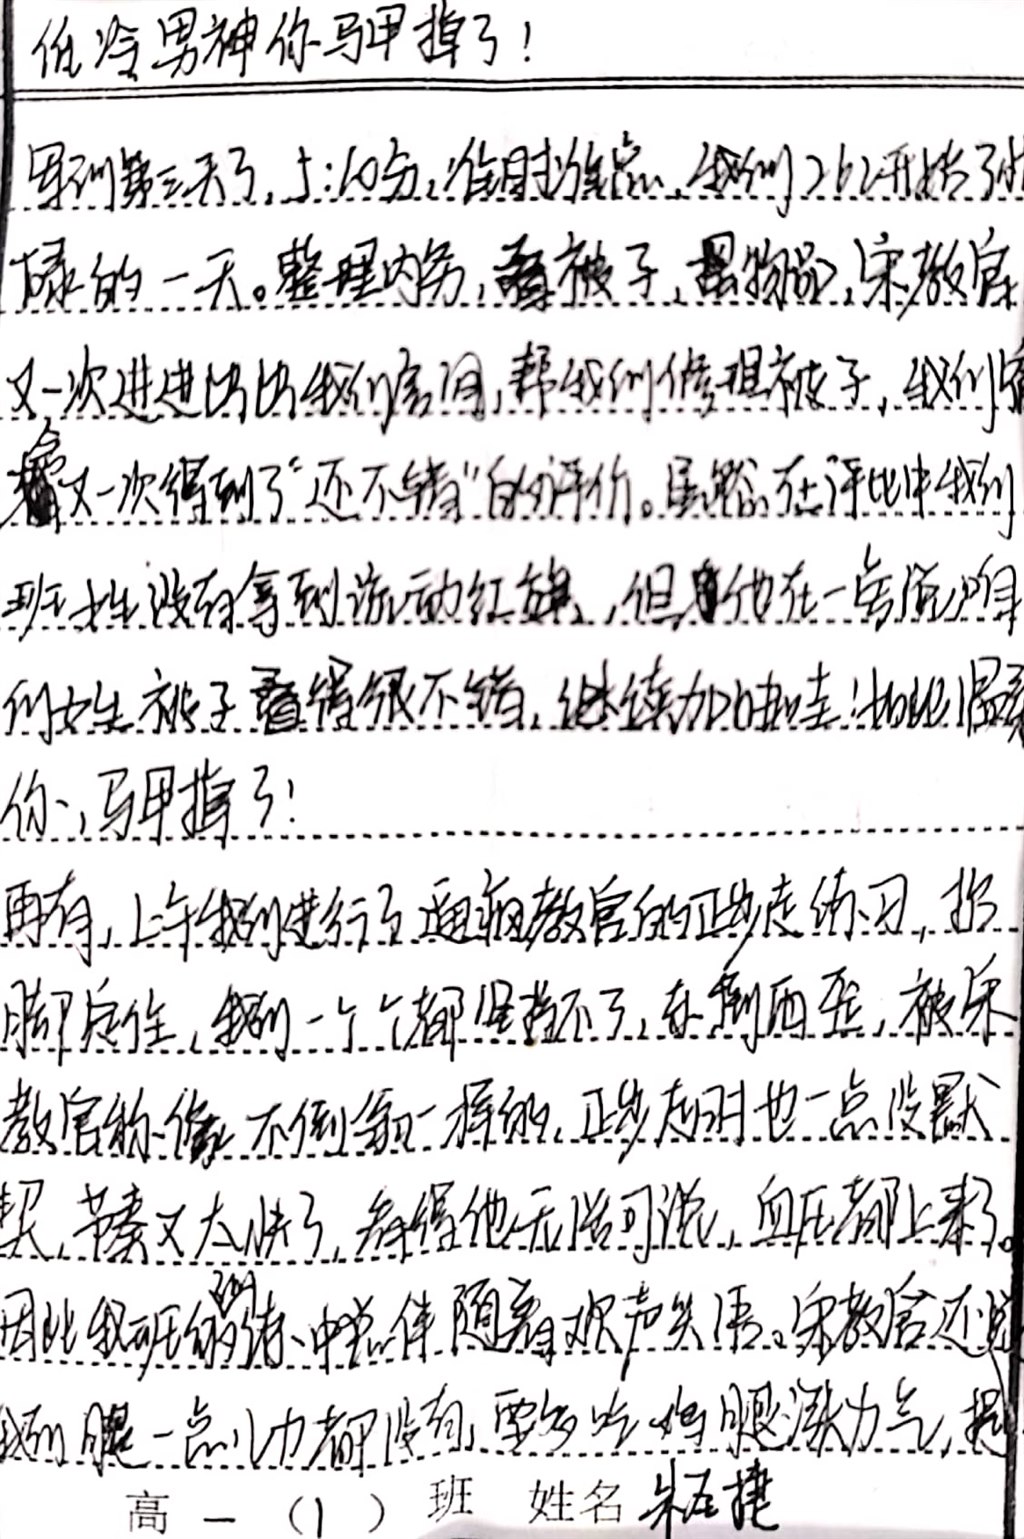 低冷男神你马甲掉了！
军训第三天了，5:60分，准时准点，我们262开始了忙
碌的一天。整理内务，叠被子，摆物品，宋教官
又一次进进出出我们宿间，帮我们修理被子，我们宿
舍又一次得到了“还不错”的评价。虽然在评比中我们
班女生没有拿到流动红旗，但他在一旁说咱
们女生被子叠得很不错，继续加油哇！如此温柔
你，马甲掉了！
再有，上午我们进行了 教官的正步走练习，抬
脚定住，我们一个个都坚持不了，东倒西歪，被宋
教官称像不倒翁一样的，正步走时也一点没默
契，节奏又太快了，弄得他无话可说，血压都上来了。
因此我班的训练中总伴随着欢声笑语。宋教官还说
我们腿一点儿力都没有，要多吃鸡腿涨力气，提
高一（1）班 姓名 朱 捷